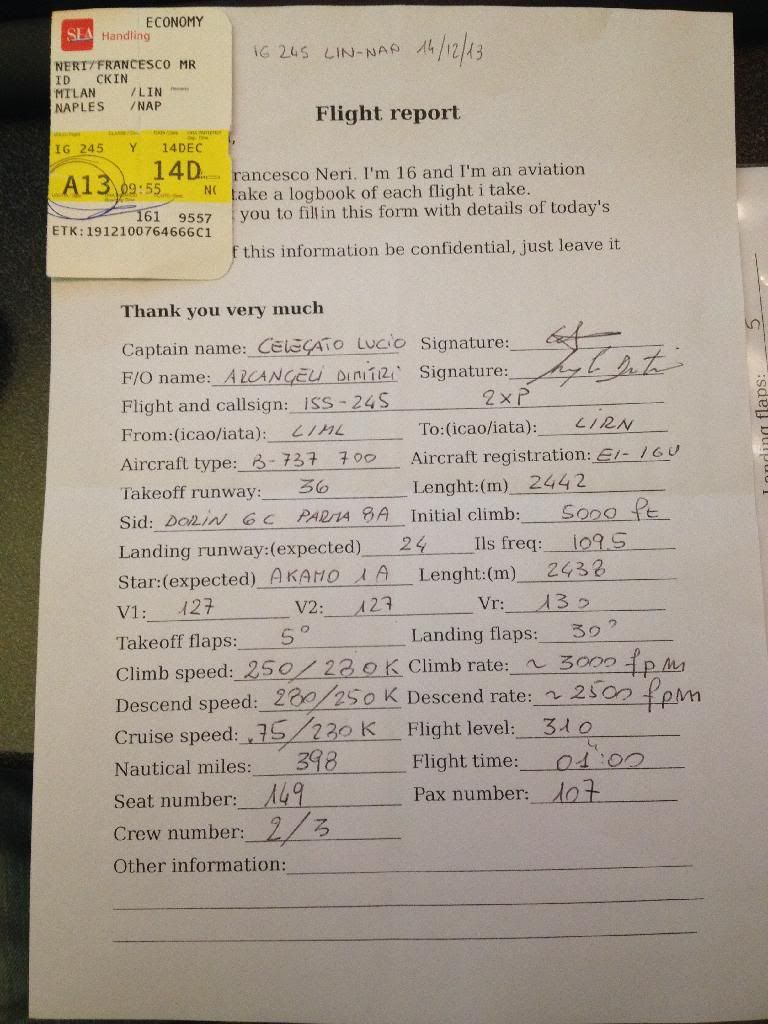 ECONOMY
SEA Handling
NERI/FRANCESCO MR
ID CKIN
MILAN /LIN
NAPLES /NAP
IG 245 Y 14DEC
14D
A13 09:55
161 9557
ETK:1912100764666C1
IG 245 LIN-NAP 14/12/13
Flight report
rancesco Neri. I'm 16 and I'm an aviation
take a logbook of each flight i take.
you to fill in this form with details of today's
f this information be confidential, just leave it
Thank you very much
Captain name: CELEGATO LUCIO Signature:
F/O name: ARCANGELI DIMITRI Signature:
Flight and callsign: ISS-245 2xP
From:(icao/iata): LIML To:(icao/iata): LIRN
Aircraft type: B-737 700 Aircraft registration: EI-IGU
Takeoff runway: 36 Lenght:(m) 2442
Sid: DORIN 6C PARMA 8A Initial climb: 5000 ft
Landing runway:(expected) 24 Ils freq: 109.5
Star:(expected) AKAMO 1A Lenght:(m) 2438
V1: 127 V2: 127 Vr: 130
Takeoff flaps: 5° Landing flaps: 30°
Climb speed: 250/280K Climb rate: ~ 3000 fpm
Descend speed: 280/250K Descend rate: ~ 2500 fpm
Cruise speed: .75/230K Flight level: 310
Nautical miles: 398 Flight time: 01:00
Seat number: 149 Pax number: 107
Crew number: 2/3
Other information:
5
Landing flaps: